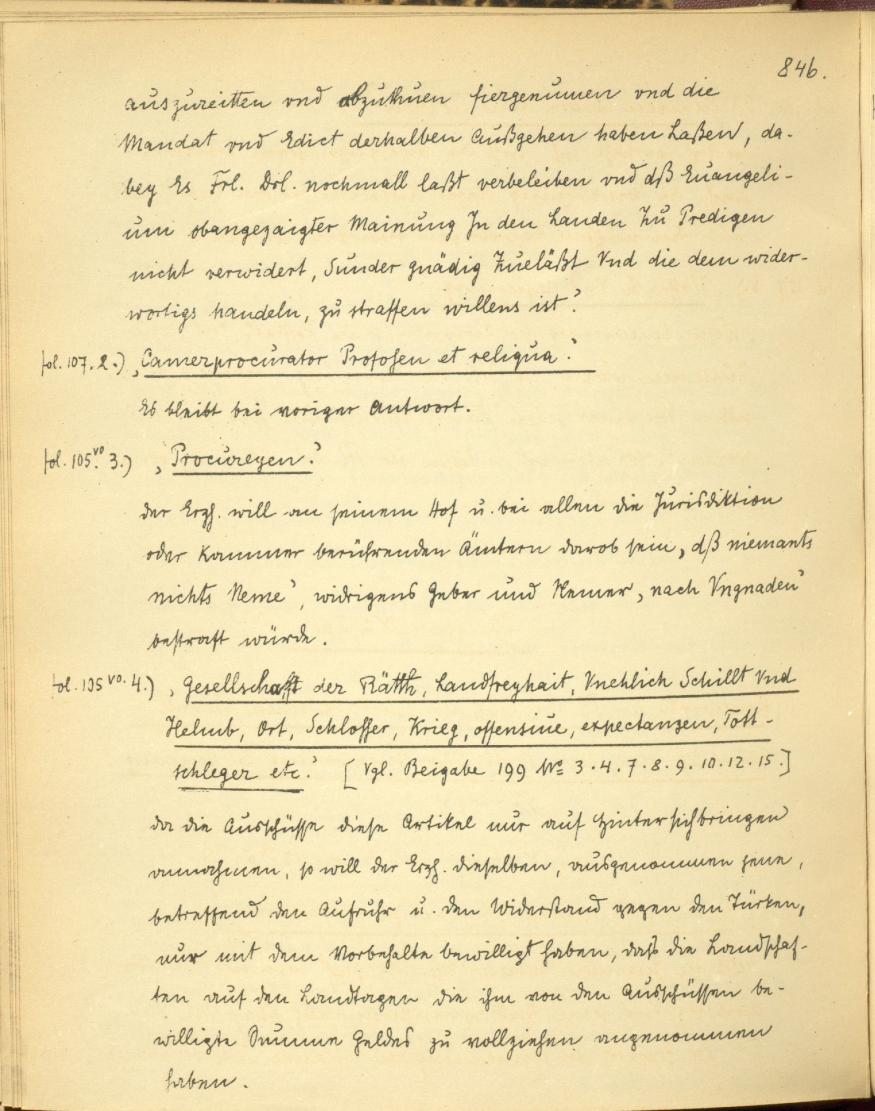 846.
auszureitten vnd abzuthuen fiergenumen vnd die
Mandat vnd Edict derhalben Außgehen haben Laßen, da-
bey Es Frl. Drl. nochmall laßt verbeleiben vnd dß Euangeli-
um obangezaigter Mainung In den Landen Zu Predigen
nicht verwidert, Sunder gnädig Zueläßt Vnd die dem wider-
wortigs handeln, zu straffen willens ist'.
fol. 107. 2.) ‚Camerprocurator Profosen et reliqua.'
Es bleibt bei voriger Antwort.
fol. 105vo. 3.) ‚Procureyen.'
der Erzh. will an seinem Hof u. bei allen die Jurisdiktion
oder Kammer berührenden Ämtern darob sein, ‚dß niemants
nichts Neme', widrigens Geber und Nemer ‚nach Vngnaden'
bestraft würde.
fol. 105vo. 4.) ‚Gesellschafft der Räth, Landfreyhait, Vnehlich Schillt Vnd
Helmb, Ort, Schlosser, Krieg, offensiue, expectanzen, Tott-
schleger etc.' [Vgl. Beigabe 199 No 3. 4. 7. 8. 9. 10. 12. 15.]
da die Ausschüsse diese Artikel nur auf Hintersichbringen
annahmen, so will der Erzh. dieselben, ausgenommen jene,
betreffend den Aufruhr u. den Widerstand gegen den Türken,
nur mit dem Vorbehalte bewilligt haben, dass die Landschaf-
ten auf den Landtagen die ihm von den Ausschüssen be-
willigte Summe Geldes zu vollziehen angenommen
haben.